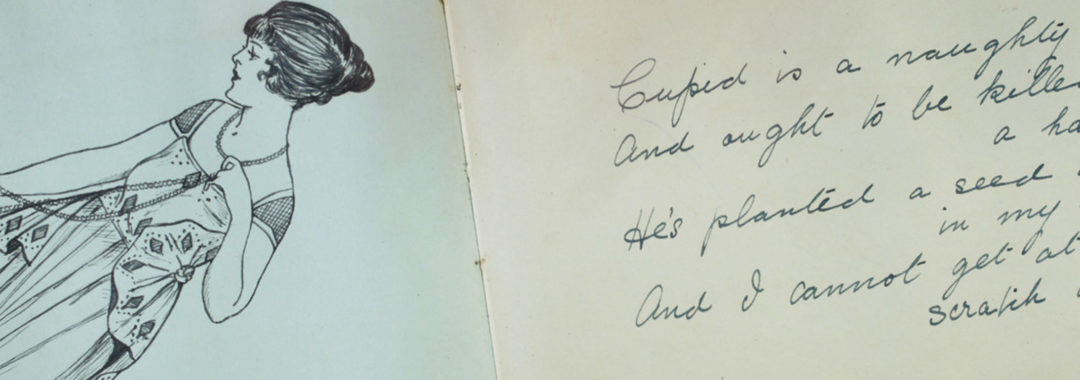 Cupid is a naughty
And ought to be
a
He's planted a seed
in my
And I cannot get at
scratch